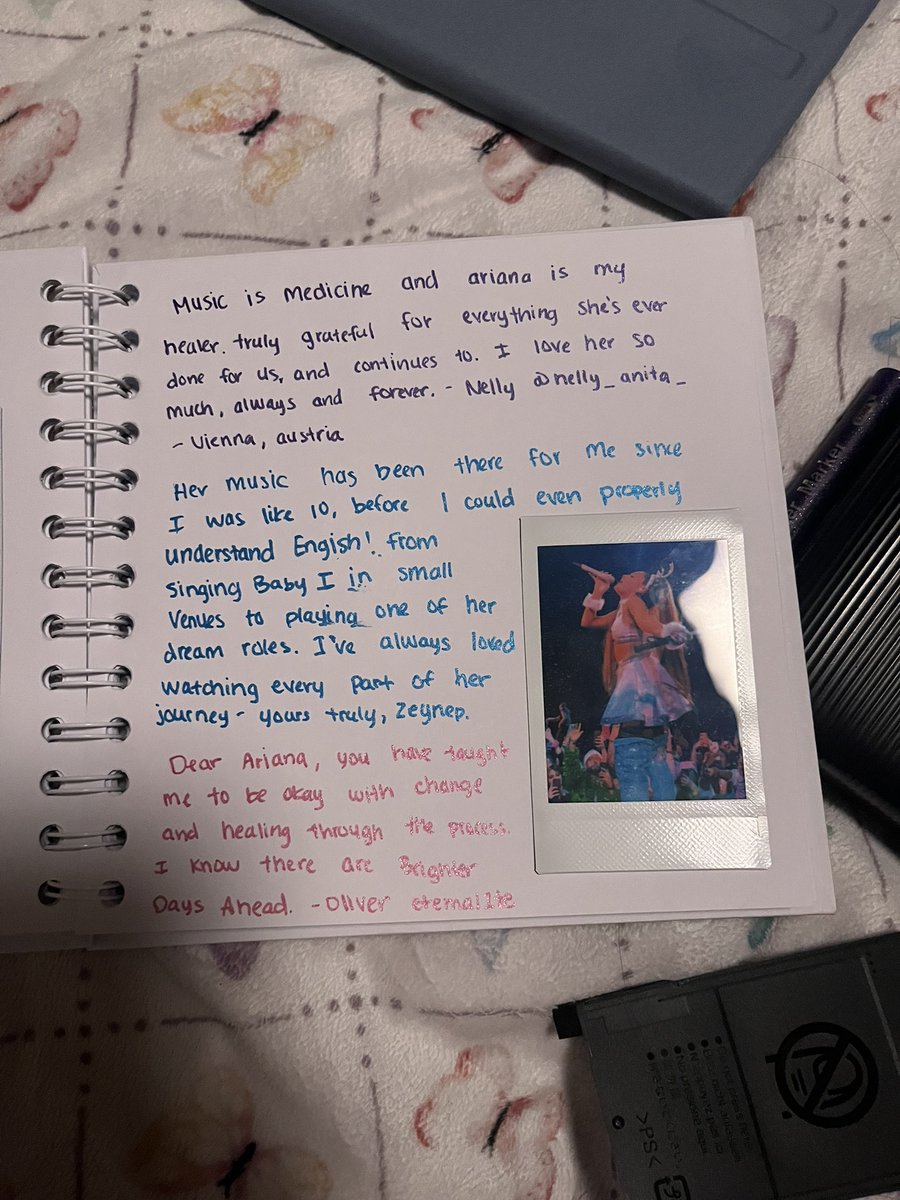 Music is medicine and ariana is my
healer. truly grateful for everything she's ever
done for us, and continues to. I love her so
much, always and forever. - Nelly @nelly_anita_
- Vienna, austria
Her music has been there for me since
I was like 10, before I could even properly
understand Engish! from
singing Baby I in small
Venues to playing one of her
dream roles. I've always loved
watching every part of her
journey - yours truly, Zeynep.
Dear Ariana, you have taught
me to be okay with change
and healing through the process.
I know there are Brighter
Days Ahead. - Oliver eternal1te
Marker
>PS<